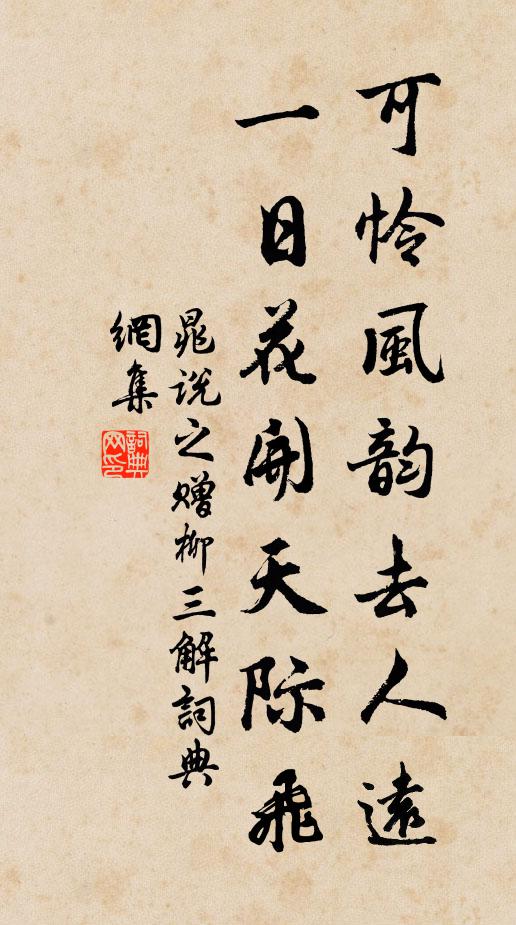 可怜風韵去人遠
一日花開天际飛
晁说之赠柳三解詞典
網集
詞典
网印